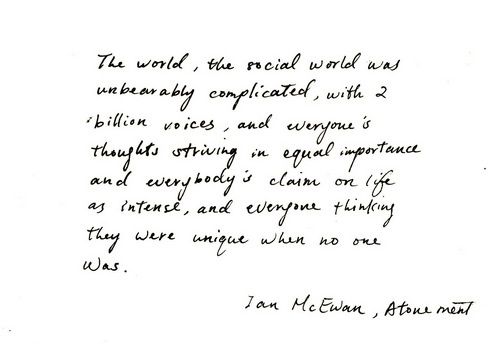 The world, the social world was
unbearably complicated, with 2
billion voices, and everyone's
thoughts striving in equal importance
and everybody's claim on life
as intense, and everyone thinking
they were unique when no one
was.
Ian McEwan, Atonement